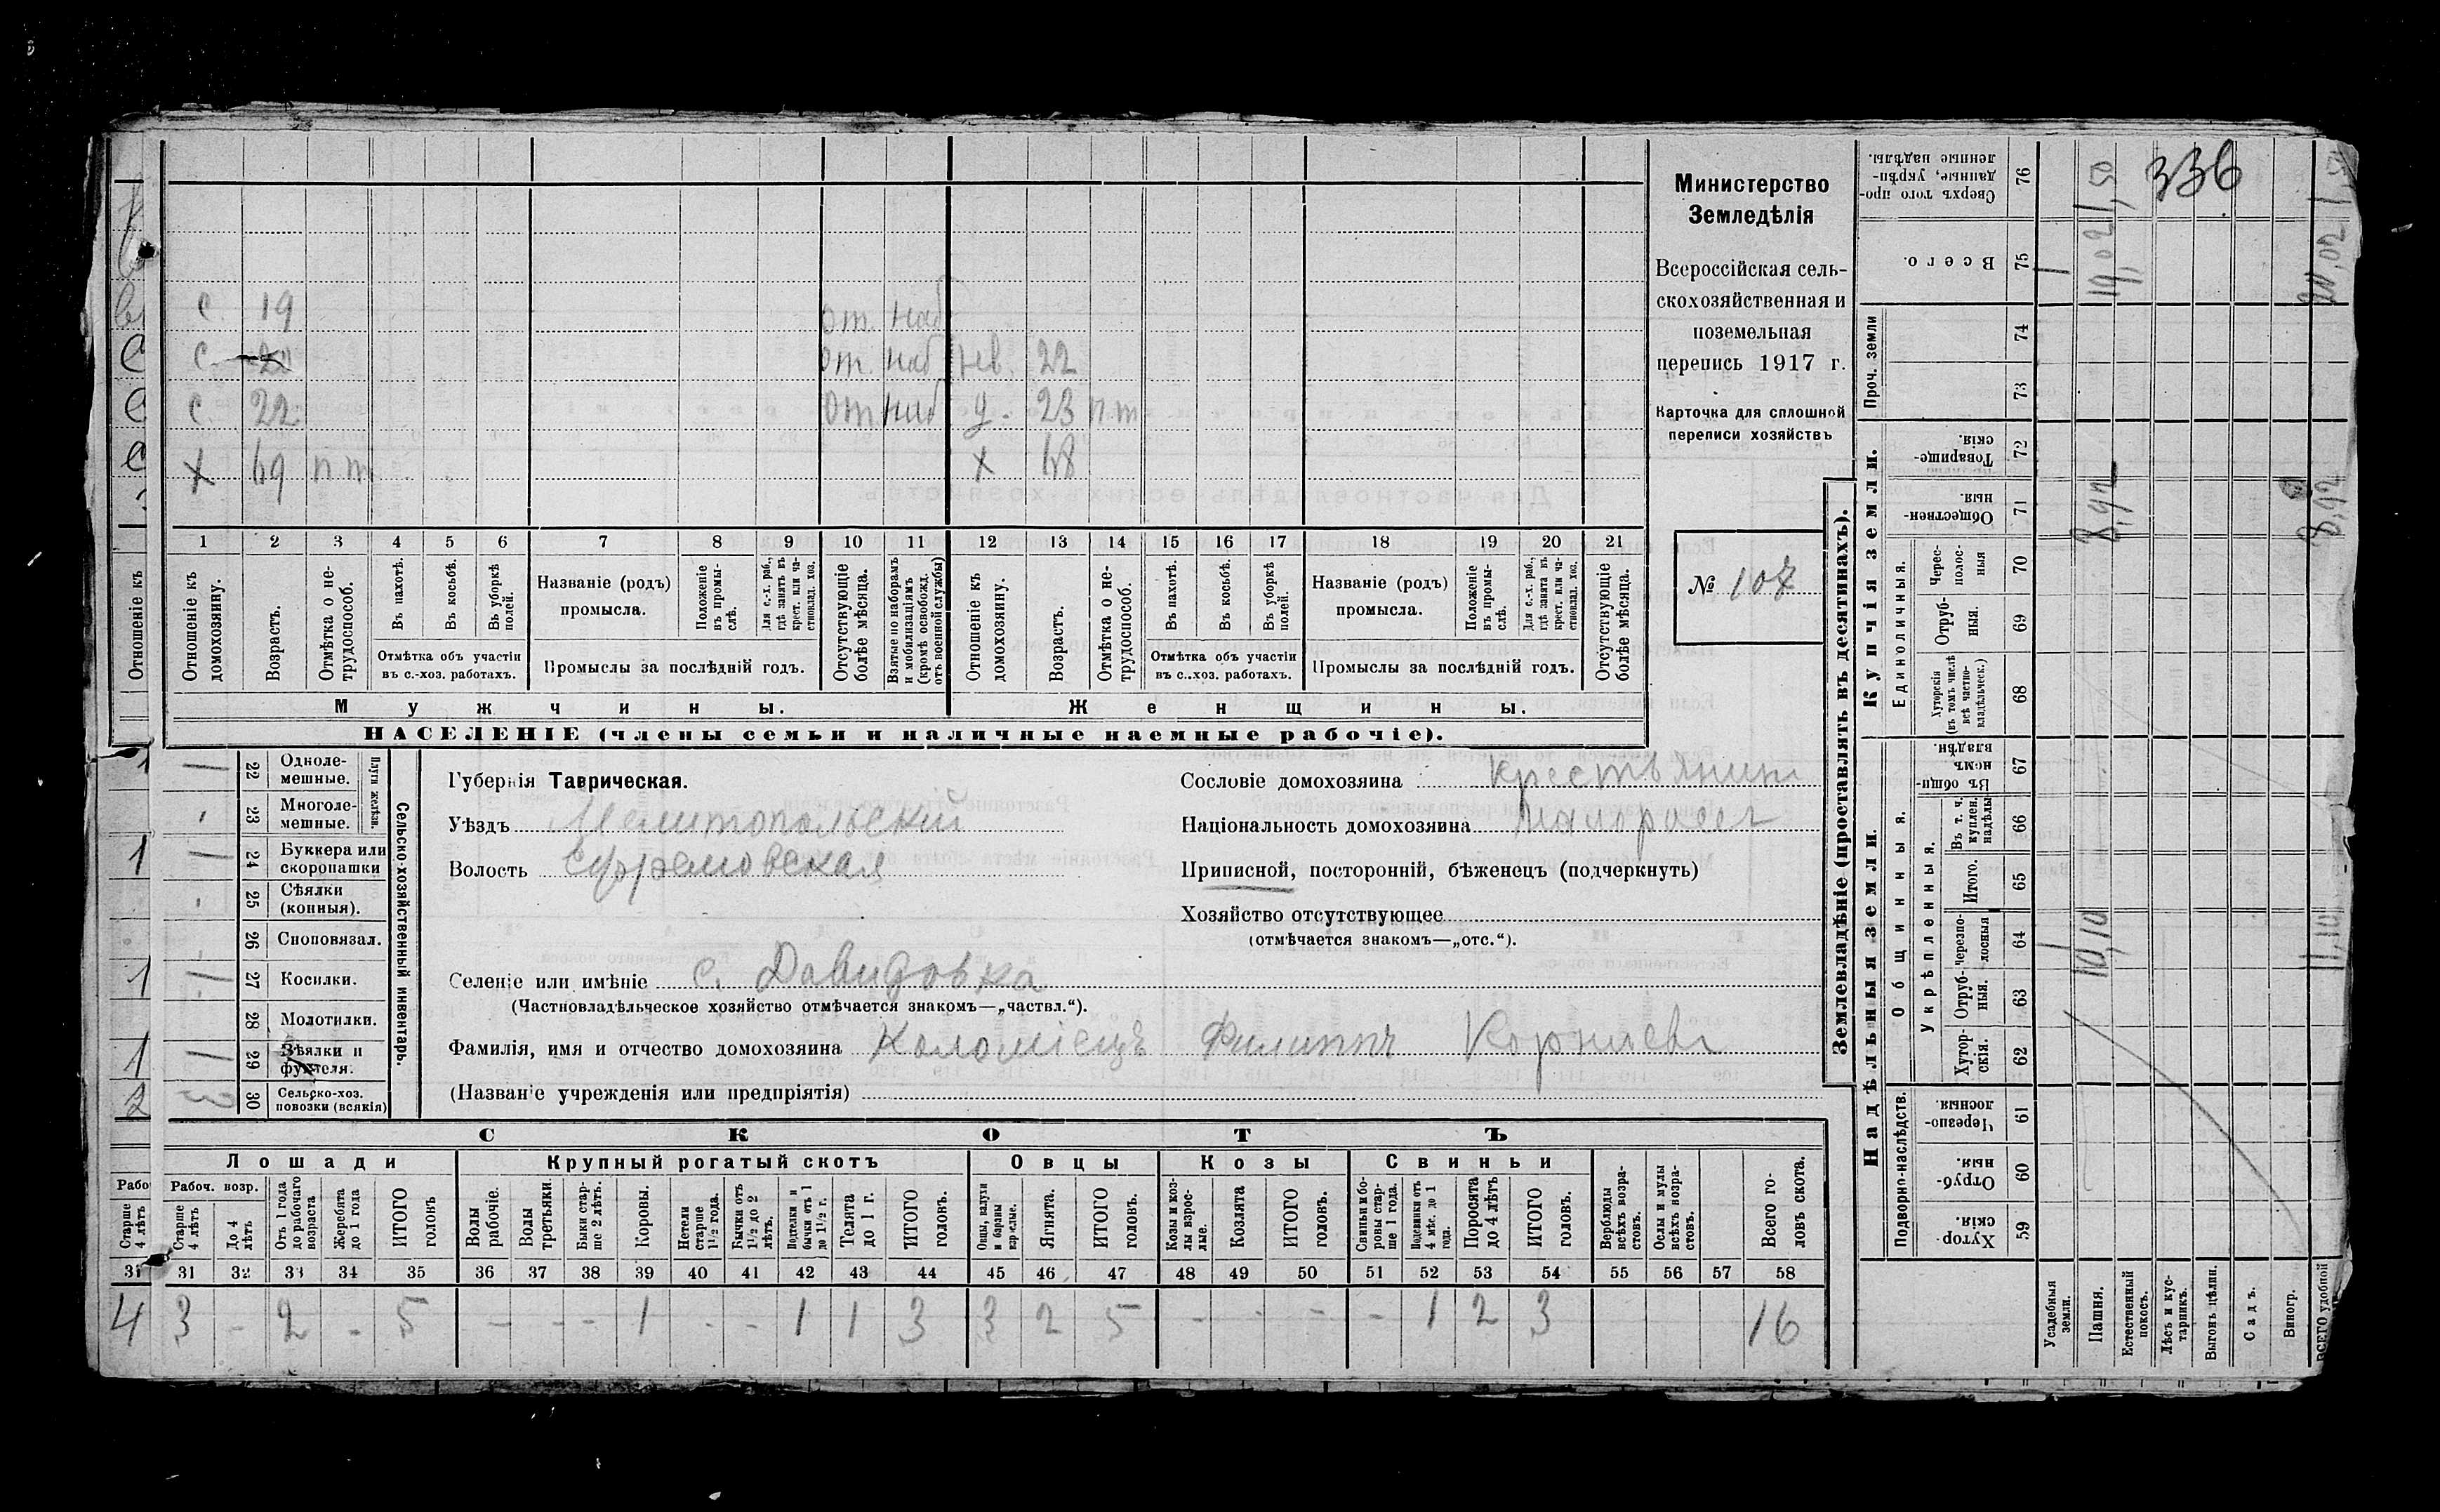 336
Министерство
Земледѣлія
Всероссійская сель-
скохозяйственная и
поземельная
перепись 1917 г.
Карточка для сплошной
переписи хозяйствъ
№ 107
с. 19 от. наб
с. 20 от. наб нев. 22
с. 22 от. наб д. 23 п.т
х 69 п.т. х 68
1 2 3 4 5 6 7 8 9 10 11 12 13 14 15 16 17 18 19 20 21
Отношеніе къ домохозяину.
Возрастъ.
Отмѣтка о не-трудоспособ.
Въ пахотѣ.
Въ косьбѣ.
Въ уборкѣ полей.
Отмѣтка объ участіи въ с.-хоз. работахъ.
Названіе (родъ) промысла.
Положеніе въ промы-слѣ.
Для с.-х. раб., гдѣ занятъ въ крест. или ча-стновлад. хоз.
Промыслы за послѣдній годъ.
Отсутствующіе болѣе мѣсяца.
Взятые по наборамъ и мобилизаціямъ (кромѣ освобожд. отъ военной службы)
Отношеніе къ домохозяину.
Возрастъ.
Отмѣтка о не-трудоспособ.
Въ пахотѣ.
Въ косьбѣ.
Въ уборкѣ полей.
Отмѣтка объ участіи въ с.-хоз. работахъ.
Названіе (родъ) промысла.
Положеніе въ промы-слѣ.
Для с.-х. раб., гдѣ занята въ крест. или ча-стновлад. хоз.
Промыслы за послѣдній годъ.
Отсутствующіе болѣе мѣсяца.
Мужчины. Женщины.
НАСЕЛЕНІЕ (члены семьи и наличные наемные рабочіе).
Губернія Таврическая.
Уѣздъ Мелитопольскій
Волость Ефремовская
Селеніе или имѣніе с. Давидовка
(Частновладѣльческое хозяйство отмѣчается знакомъ—„частвл.“).
Фамилія, имя и отчество домохозяина Коломіецъ Филиппъ Корніевъ
(Названіе учрежденія или предпріятія)
Сословіе домохозяина крестьянин
Національность домохозяина малоросъ
Приписной, посторонній, бѣженецъ (подчеркнуть)
Хозяйство отсутствующее
(отмѣчается знакомъ—„отс.“).
Сельско-хозяйственный инвентарь.
Плуги желѣзн.
22 Одноле-мешные.
23 Многоле-мешные.
24 Буккера или скоропашки
25 Сѣялки (конныя).
26 Сноповязал.
27 Косилки.
28 Молотилки.
29 Вѣялки и фухтеля.
30 Сельско-хоз. повозки (всякія)
1 1 1 1 2
3
СКОТЪ
Лошади Крупный рогатый скотъ Овцы Козы Свиньи
Рабоч. возр.
Старше 4 лѣтъ
До 4 лѣтъ
Отъ 1 года до рабочаго возраста
Жеребята до 1 года
ИТОГО головъ
Волы рабочіе.
Волы третьяки.
Быки стар-ше 2 лѣтъ.
Коровы.
Нетели старше 1½ года.
Бычки отъ 1½ до 2 лѣтъ.
Подтелки и бычки отъ 1 до 1½ г.
Телята до 1 г.
ИТОГО головъ.
Овцы, валухи и бараны взрослые.
Ягнята.
ИТОГО головъ.
Козы и коз-лы взрос-лые.
Козлята
ИТОГО головъ.
Свиньи и бо-ровы стар-ше 1 года.
Подсвинки отъ 4 мѣс. до 1 года.
Поросята до 4 лѣтъ
ИТОГО головъ.
Верблюды всѣхъ возра-стовъ.
Ослы и мулы всѣхъ возра-стовъ.
Всего го-ловъ скота.
31 31 32 33 34 35 36 37 38 39 40 41 42 43 44 45 46 47 48 49 50 51 52 53 54 55 56 57 58
4 3 - 2 - 5 - - - 1 - - 1 1 3 3 2 5 - - - - 1 2 3 16
Землевладѣніе (проставлять въ десятинахъ).
Купчія земли.
Надѣльныя земли.
Сверхъ того про-данные, укрѣп-ленные надѣлы. 76
Всего. 75
Проч. земли 74 73
Товарище-скія. 72
Обществен-ныя. 71
Единоличныя.
Черес-полос-ныя 70
Отруб-ныя. 69
Хуторскія (въ томъ числѣ всѣ частно-владѣльческ.) 68
Общинныя.
Въ общин-номъ владѣн. 67
Укрѣпленныя.
Въ т. ч. куплен. надѣлы 66
Итого. 65
Черезпо-лосныя 64
Отруб-ныя. 63
Хутор-скія. 62
Подворно-наслѣдств.
Черезпо-лосныя. 61
Отруб-ныя. 60
Хутор-скія. 59
Усадебныя земли.
Пашня.
Естественный покосъ.
Лѣсъ и кус-тарникъ.
Выгонъ цѣлин.
Садъ.
Виногр.
ВСЕГО удобной
1 1
10,10 8,92 19,02 1,50
11,10 8,92 20,02 1,50